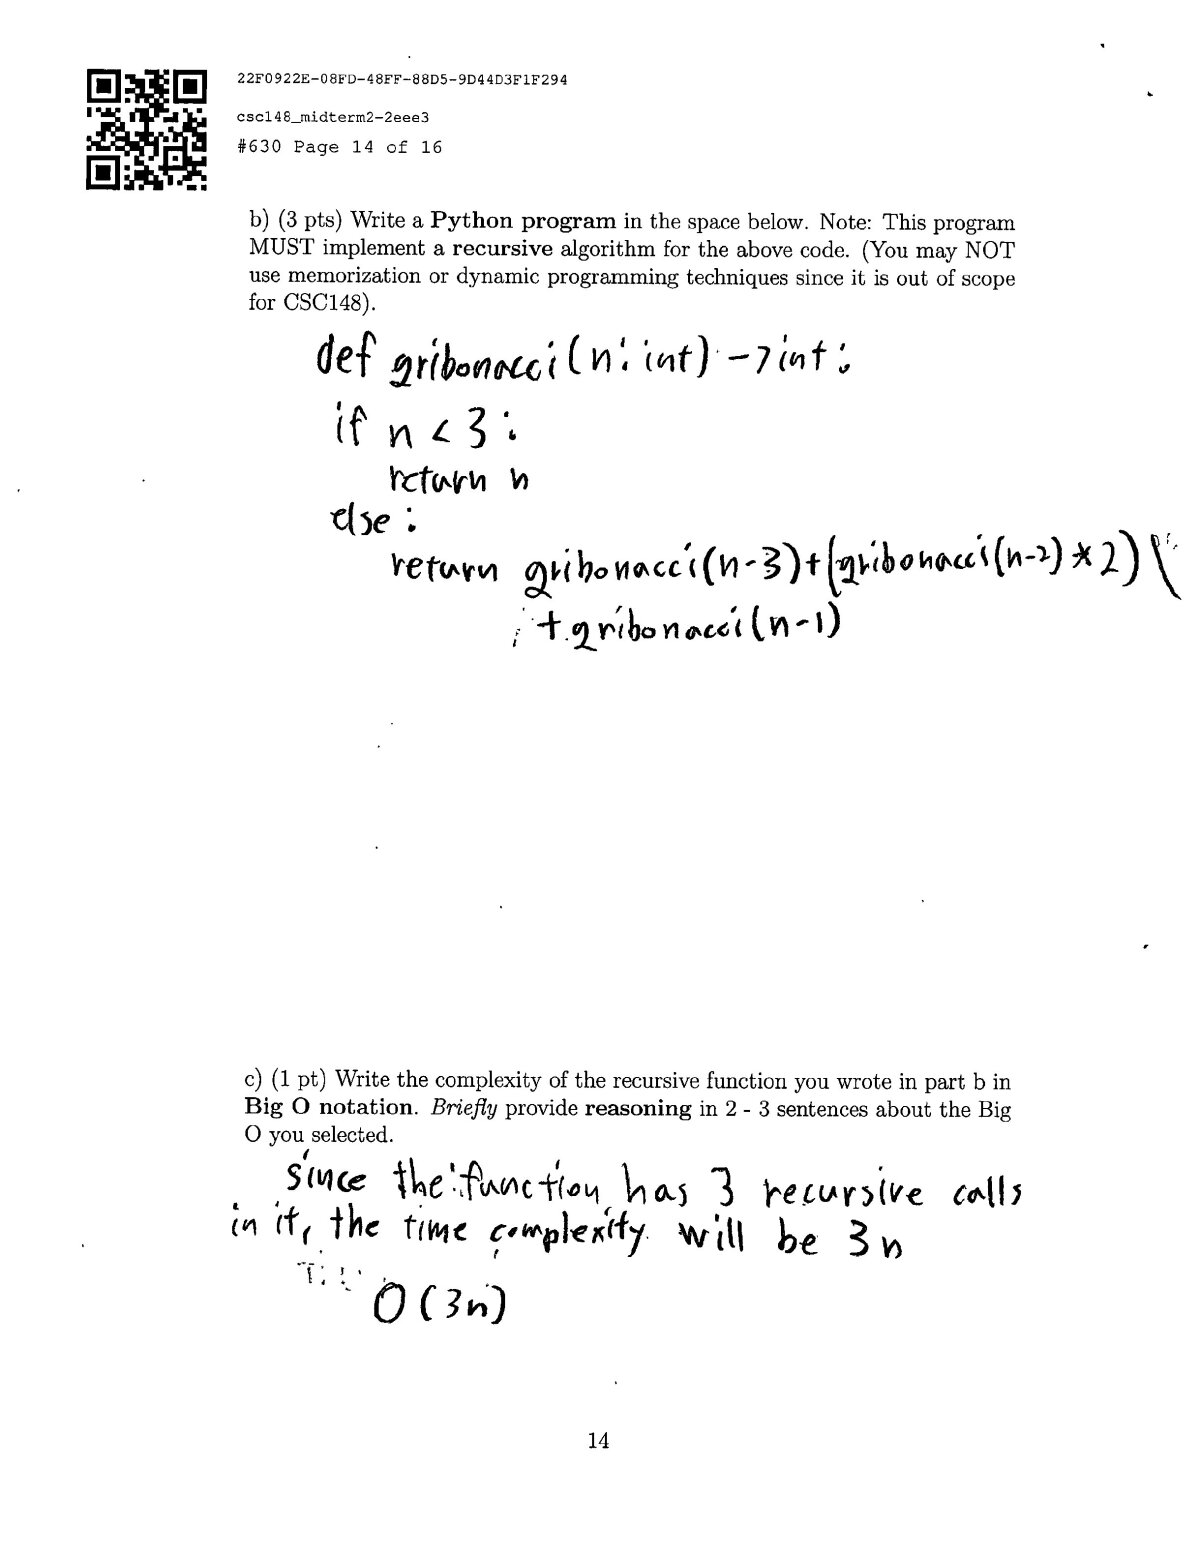 22F0922E-08FD-48FF-88D5-9D44D3F1F294
csc148_midterm2-2eee3
#630 Page 14 of 16
b) (3 pts) Write a Python program in the space below. Note: This program
MUST implement a recursive algorithm for the above code. (You may NOT
use memorization or dynamic programming techniques since it is out of scope
for CSC148).
def gribonacci(n: int) -> int:
if n < 3:
return n
else:
return gribonacci(n-3)+(gribonacci(n-2)*2) \
+ gribonacci(n-1)
c) (1 pt) Write the complexity of the recursive function you wrote in part b in
Big O notation. Briefly provide reasoning in 2 - 3 sentences about the Big
O you selected.
since the function has 3 recursive calls
in it, the time complexity will be 3n
O(3n)
14